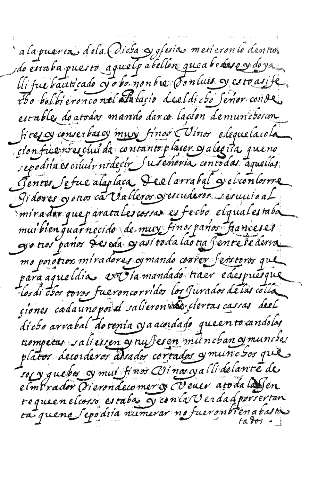 a la puerta dela Dicha yglesia metieronlo dentro
do estaba puesto aquel pabellon que abedes oydo y a
lli fue bautiçado y obo nonbre Don luis y esto asi fe
cho bolbieronco nel al Palacio deel dicho Señor conde
estable do a todos mando dar colaçion de muchos con
fites y conserbas y muy finos Vinos el e quela cola
çion fue rresçiuida con tanto plaçer y alegria que no
se podria escriuir ni deçir su señoria con todos aquellos
gentes se fue a la plaça deel arrabal y el con los rre
gidores y otros caualleros y escuderos se suvio al
mirador que para tales cossas es fecho el qual estaba
mui bien guarnecido de muy finos paños françeses
y otros paños de seda y asi toda la otra gente se derra
mo por otros miradores y mando correr seis toros que
para aquel dia avia mandado traer e despues que
los dichos toros fueron corridos los Jurados de las colla
çiones cada uno por si salieron de ciertas cassas deel
dicho arrabal do tenia ya acordado que en tocandolas
trompetas saliessen y truxesen mucho pan y muchos
platos de corderos assados cortados y muchos que
sos y guebos y muy finos Vinos y alli delante de
el mirador dieron de comer y Vever a toda la gen
te que en el corso estaba y con la Verdad por ser tan
ta que no se podria numerar no fueron bien abasta
tados